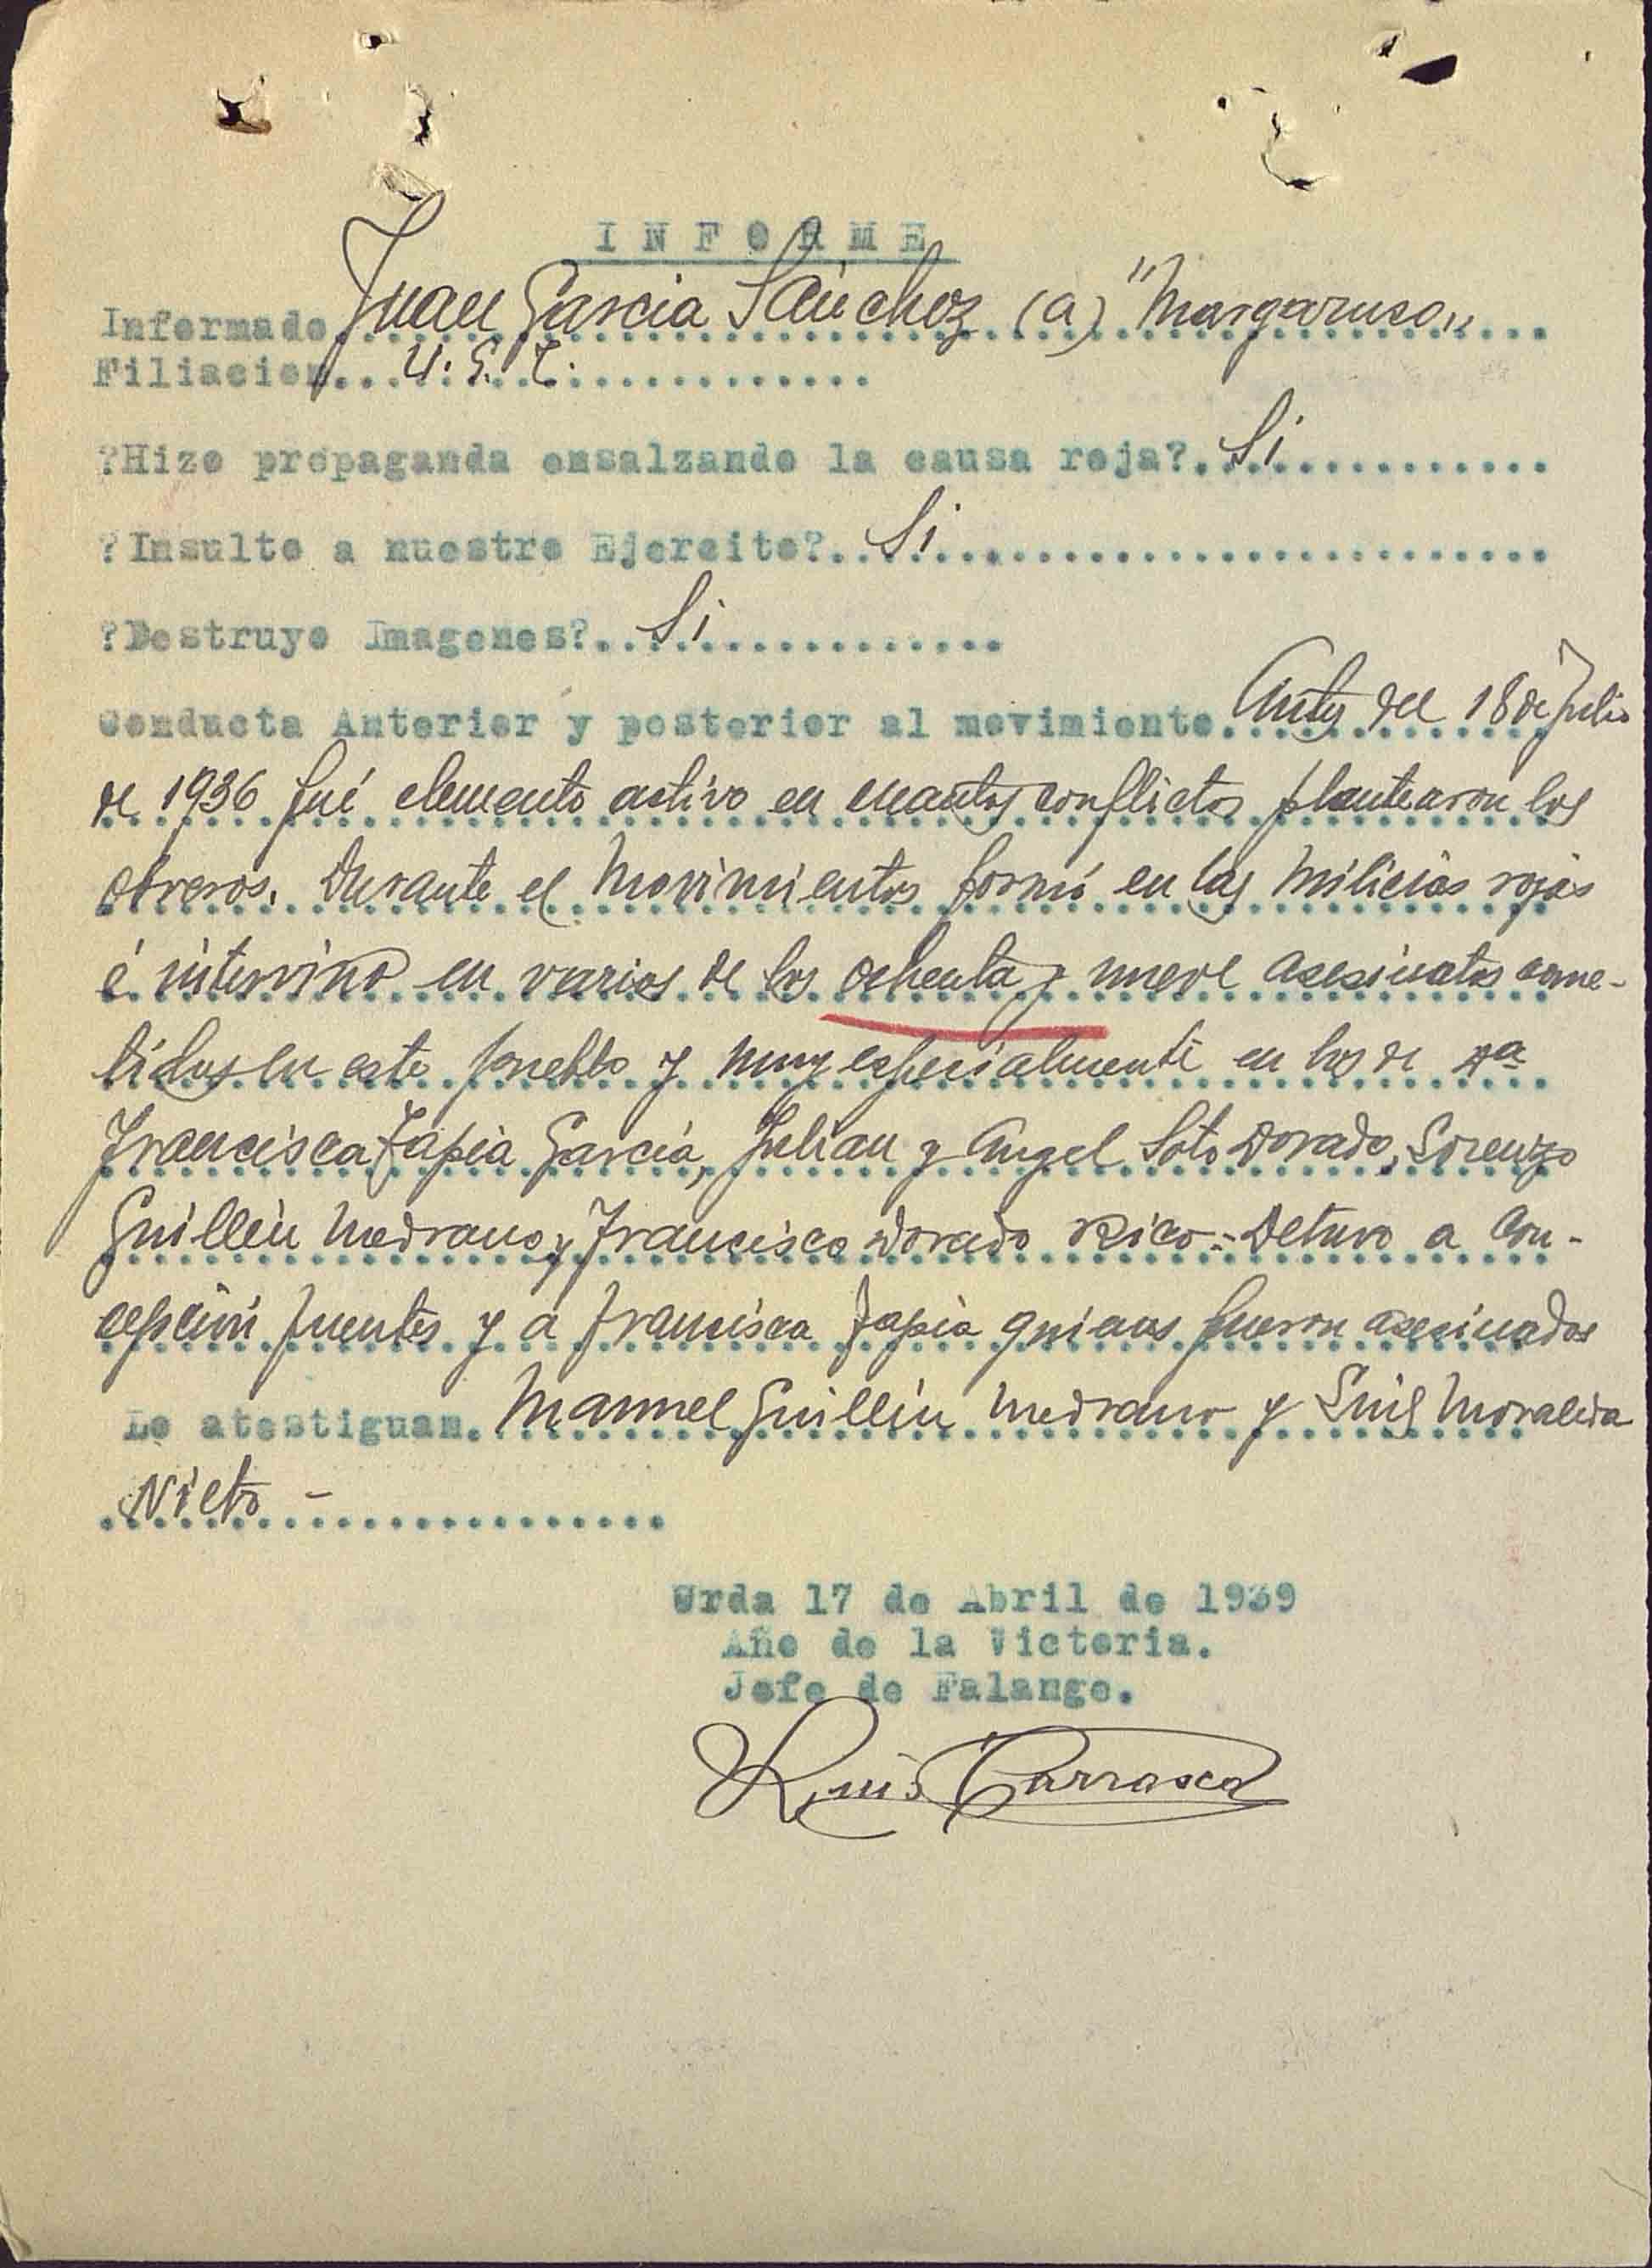 INFORME
Informado Juan Garcia Sánchez (a) "Margaruso"
Filiacion... U. G. T.
?Hizo propaganda ensalzando la causa roja?. Si
?Insulto a nuestro Ejercito?.. Si
?Destruyo Imagenes?.. Si
Conducta Anterior y posterior al movimiento. Antes del 18 de Julio
de 1936 fué elemento activo en cuantos conflictos plantearon los
obreros. Durante el Movimientos formó en las Milicias rojas
é intervino en varios de los ochenta y nueve asesinatos come-
tidos en este pueblo y muy especialmente en los de Dª
Francisca Tapia García, Julian y Angel Soto Dorado, Lorenzo
Guillén Medrano y Francisco Dorado Rico.- Detuvo a Con-
cepción Fuentes y a Francisca Tapia quienes fueron asesinados
Lo atestiguan. Manuel Guillén Medrano y Luis Moraleda
Nieto -
Urda 17 de Abril de 1939
Año de la Victoria.
Jefe de Falange.
Luis Carrasco